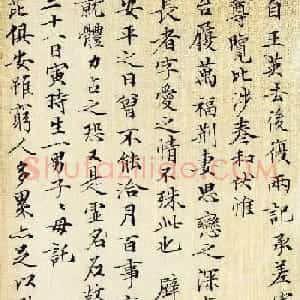 自王黄去後復兩記承差
尊覽比涉春和伏惟
台履萬福荆妻思戀之深
長者字愛之情不殊此也 壁
安平之日曾不能洽月百事
就體力占之恐又是虚名友故
二十八日寅時生一男子子母託
庇俱安雖窮人多累亦足以
ShufaZiliao.com